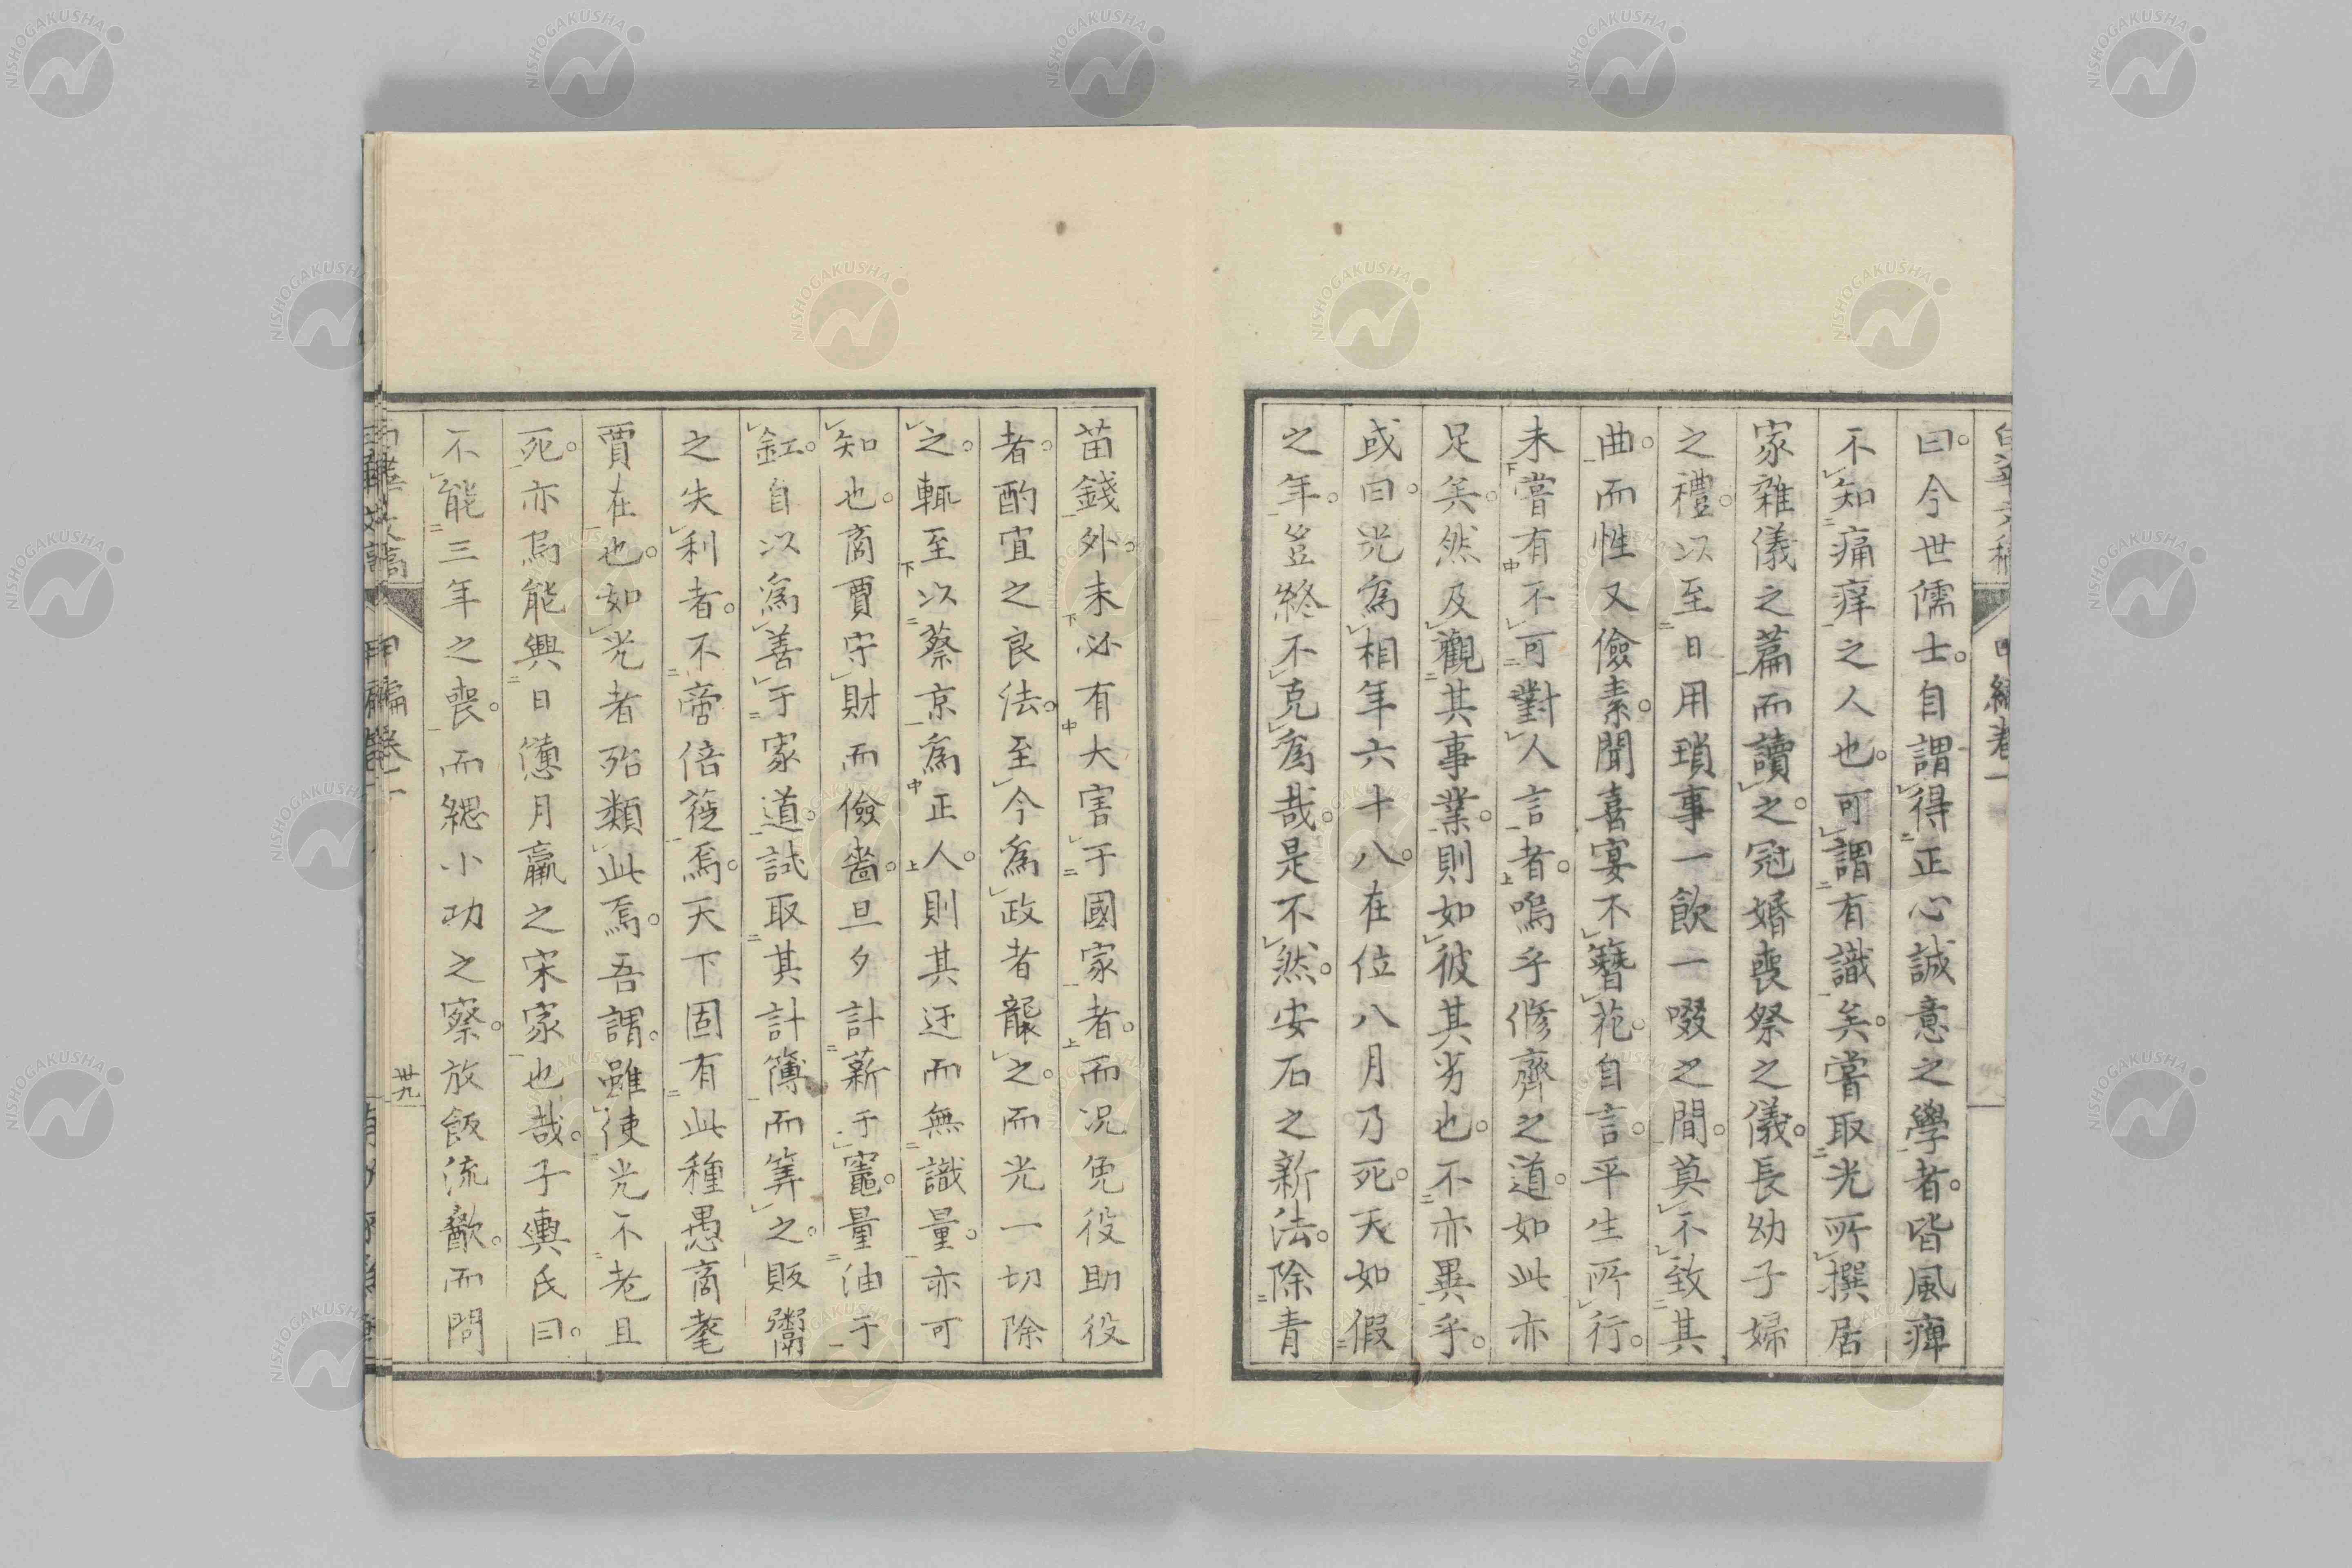 曰。今世儒士。自謂得正心誠意之學者。皆風痺
不知痛痒之人也。可謂有識矣。嘗取光所撰居
家雜儀之篇而讀之。冠婚喪祭之儀。長幼子婦
之禮。以至日用瑣事一飲一啜之間。莫不致其
曲。而性又儉素。聞喜宴不簪花。自言。平生所行。
未嘗有不可對人言者。嗚乎修齊之道。如此亦
足矣。然及觀其事業。則如彼其劣也。不亦異乎。
或曰。光爲相年六十八。在位八月乃死。天如假
之年。豈終不克爲哉。是不然。安石之新法。除青
苗錢外。未必有大害于國家者。而況免役助役
者。酌宜之良法。至今爲政者襲之。而光一切除
之。輒至以蔡京爲正人。則其迂而無識量。亦可
知也。商賈守財而儉嗇。旦夕計薪于竈。量油于
釭。自以爲善于家道。試取其計簿而筭之。販鬻
之失利者。不啻倍蓰焉。天下固有此種愚商耄
賈在也。如光者殆類此焉。吾謂。雖使光不老且
死。亦烏能興日憊月羸之宋家也哉。子輿氏曰。
不能三年之喪。而緦小功之察。放飯流歠。而問
甲編卷一
卅九
NISHOGAKUSHA